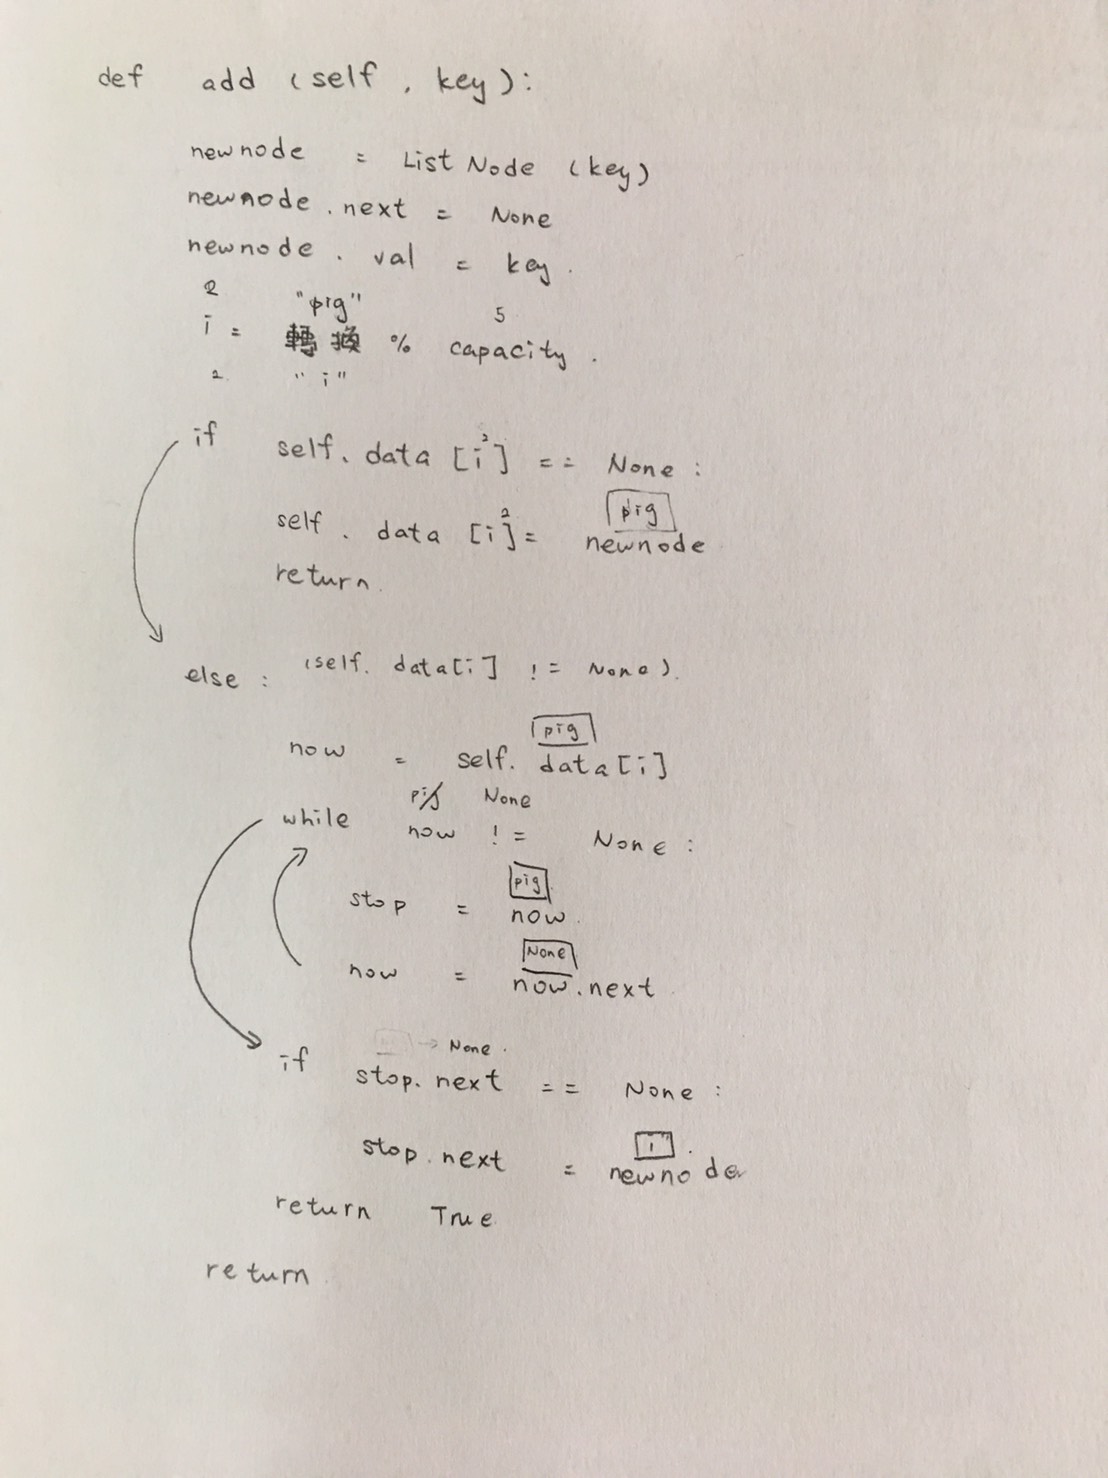 def add (self, key):
newnode = ListNode (key)
newnode.next = None
newnode.val = key.
2 "pig" 5
i = 轉換 % capacity.
2 "i"
if self.data [i] == None:
2
pig
self.data [i] = newnode
2
return.
else: (self.data[i] != None).
pig
now = self.data[i]
pig None
while now != None:
pig
stop = now.
None
now = now.next
None.
if stop.next == None:
i
stop.next = newnode
return True
return.